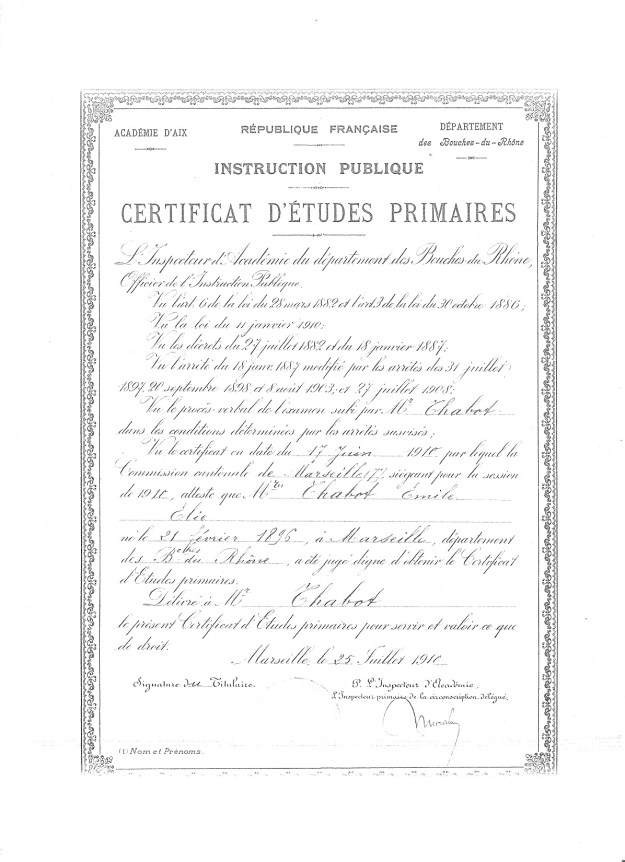 ACADÉMIE D'AIX
RÉPUBLIQUE FRANÇAISE
DÉPARTEMENT
des Bouches-du-Rhône
INSTRUCTION PUBLIQUE
CERTIFICAT D'ÉTUDES PRIMAIRES
L'Inspecteur d'Académie du département des Bouches-du-Rhône,
Officier de l'Instruction Publique.
Vu l'art. 6 de la loi du 28 mars 1882 et l'art. 3 de la loi du 30 octobre 1886;
Vu la loi du 11 janvier 1910;
Vu les décrets du 27 juillet 1882 et du 18 janvier 1887;
Vu l'arrêté du 18 janv. 1887 modifié par les arrêtés des 31 juillet
1897, 20 septembre 1898 et 8 août 1903, et 27 juillet 1908;
Vu le procès-verbal de l'examen subi par Mr Chabot
dans les conditions déterminées par les arrêtés susvisés;
Vu le certificat en date du 17 Juin 1910 par lequel la
Commission cantonale de Marseille siégeant pour la session
de 1910, atteste que Mr Chabot Émile
Élie
né le 21 février 1896, à Marseille, département
des Bches du Rhône, a été jugé digne d'obtenir le Certificat
d'Etudes primaires.
Délivré à Mr Chabot
le présent Certificat d'Etudes primaires pour servir et valoir ce que
de droit.
Marseille, le 25 Juillet 1910
Signature du Titulaire.
P. L'Inspecteur d'Académie.
L'Inspecteur primaire de la circonscription délégué,
(1) Nom et Prénoms.